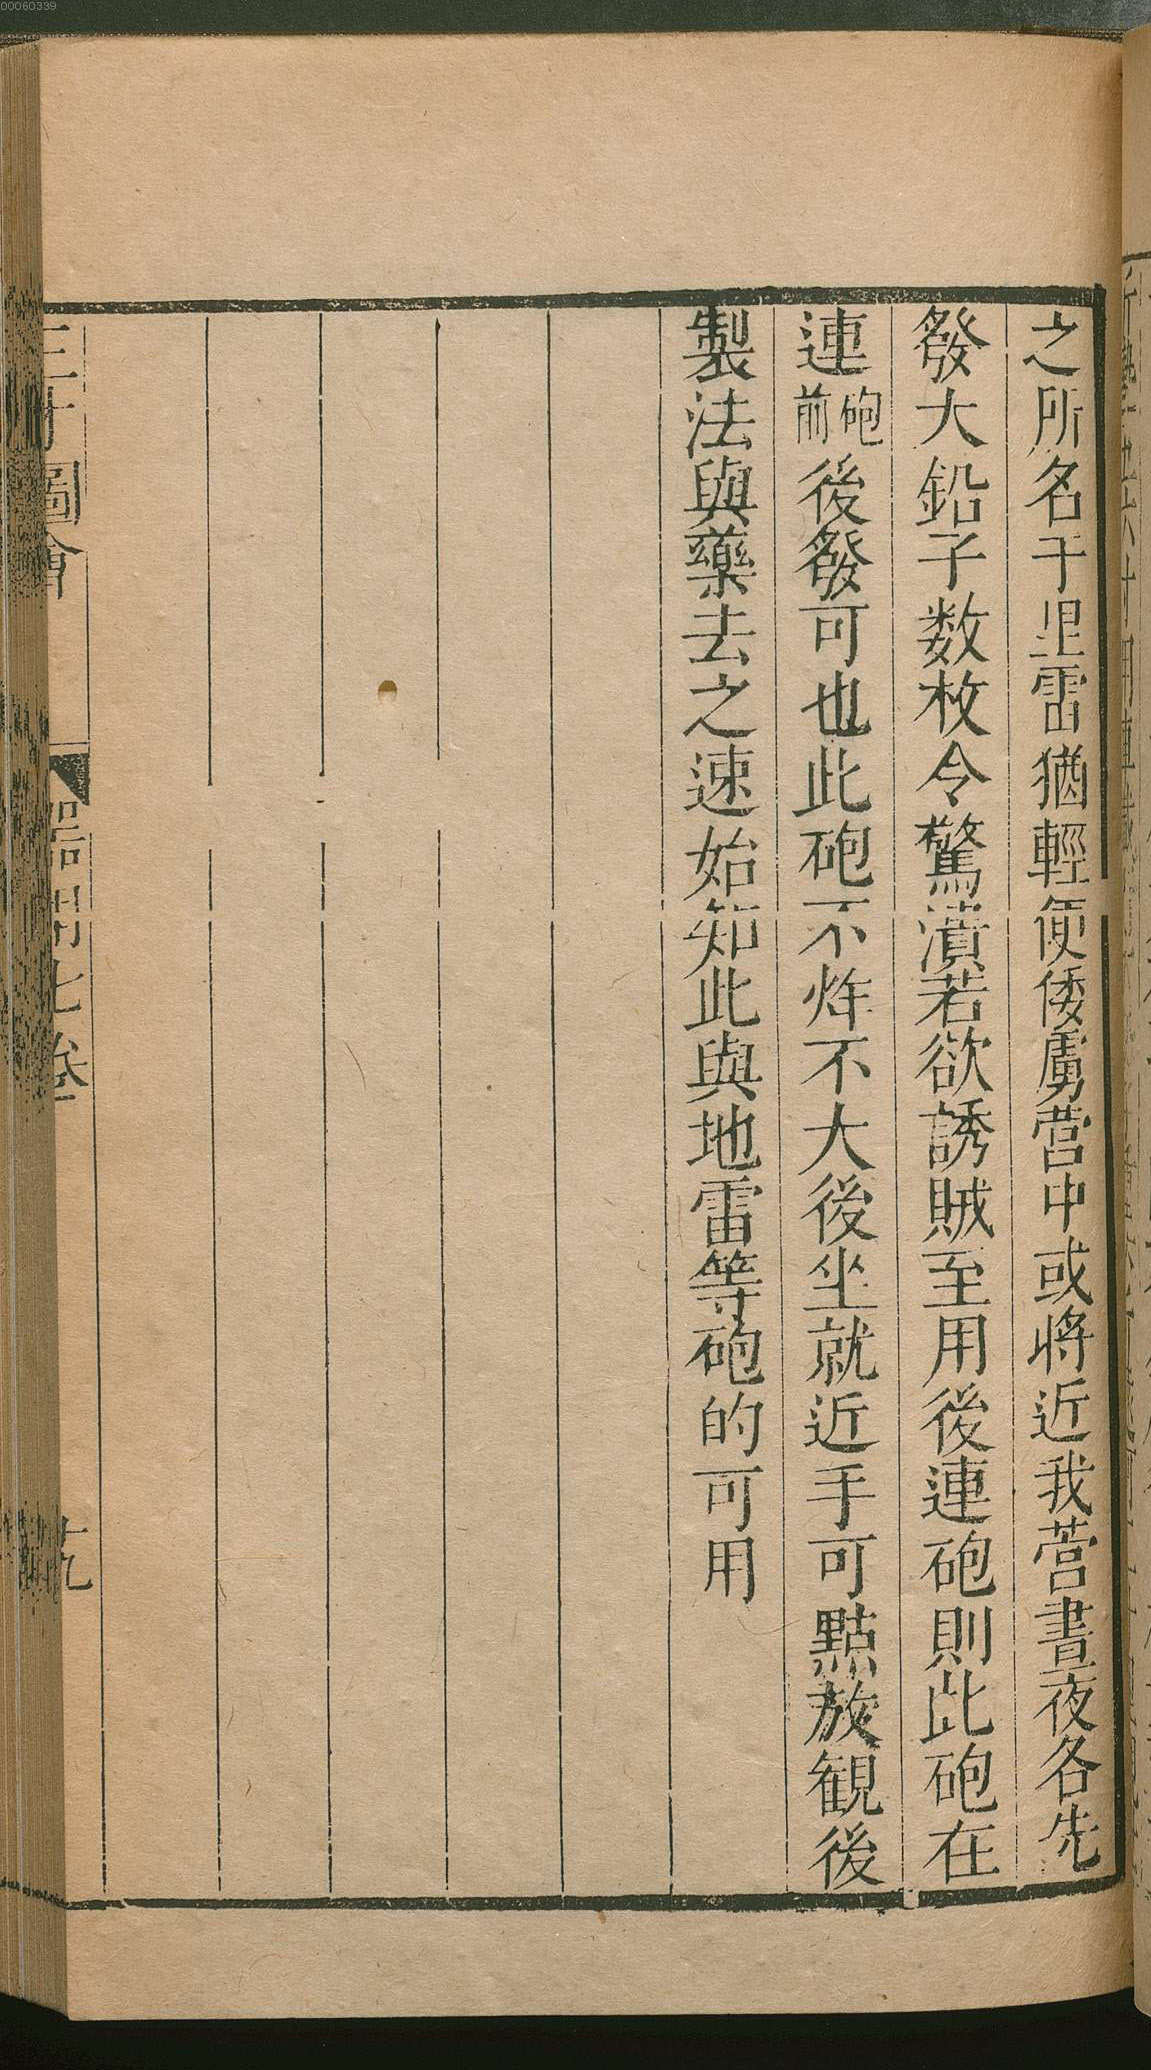 之所名千里雷猶輕便倭虜營中或將近我營晝夜各先
發大鉛子数枚令驚潰若欲誘賊至用後連砲則此砲在
連砲前後發可也此砲不炸不大後坐就近手可點放観後
製法與藥去之速始知此與地雷等砲的可用
三才圖會
器用七卷
00060339